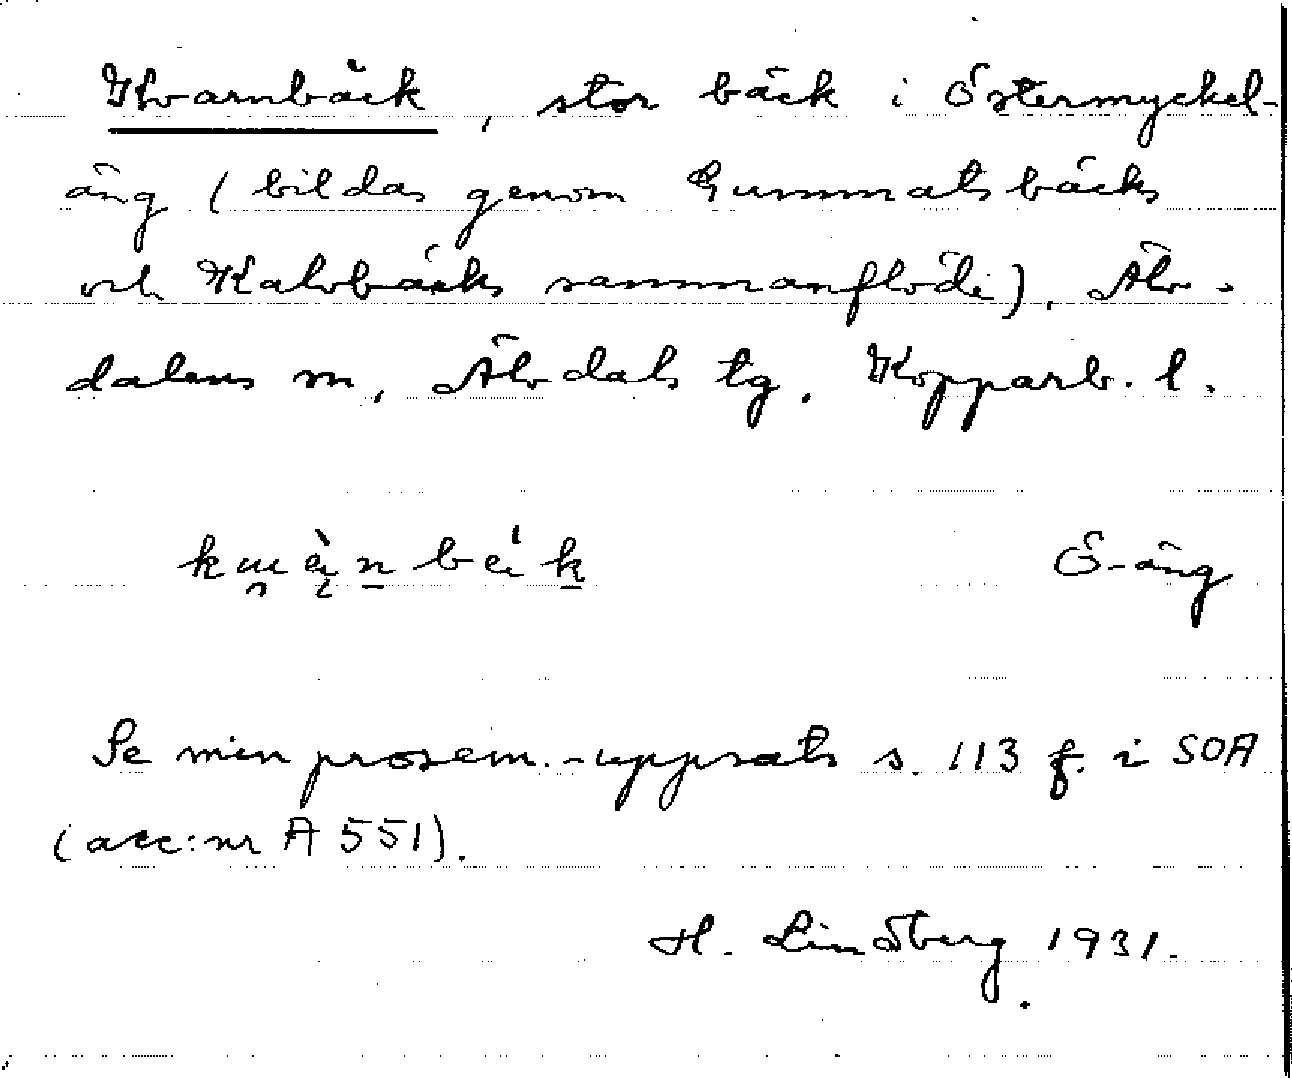 Kvarnbäck, stor bäck i Östermyckel-
äng (bildas genom Gummatsbäcks
och Kalvbäcks sammanflöde), Älv-
dalens sn, Älvdals tg. Kopparb. l.
Ö-äng
Se min prosem.-uppsats s. 113 f. i SOA
(acc:nr A 551).
H. Lindberg 1931.